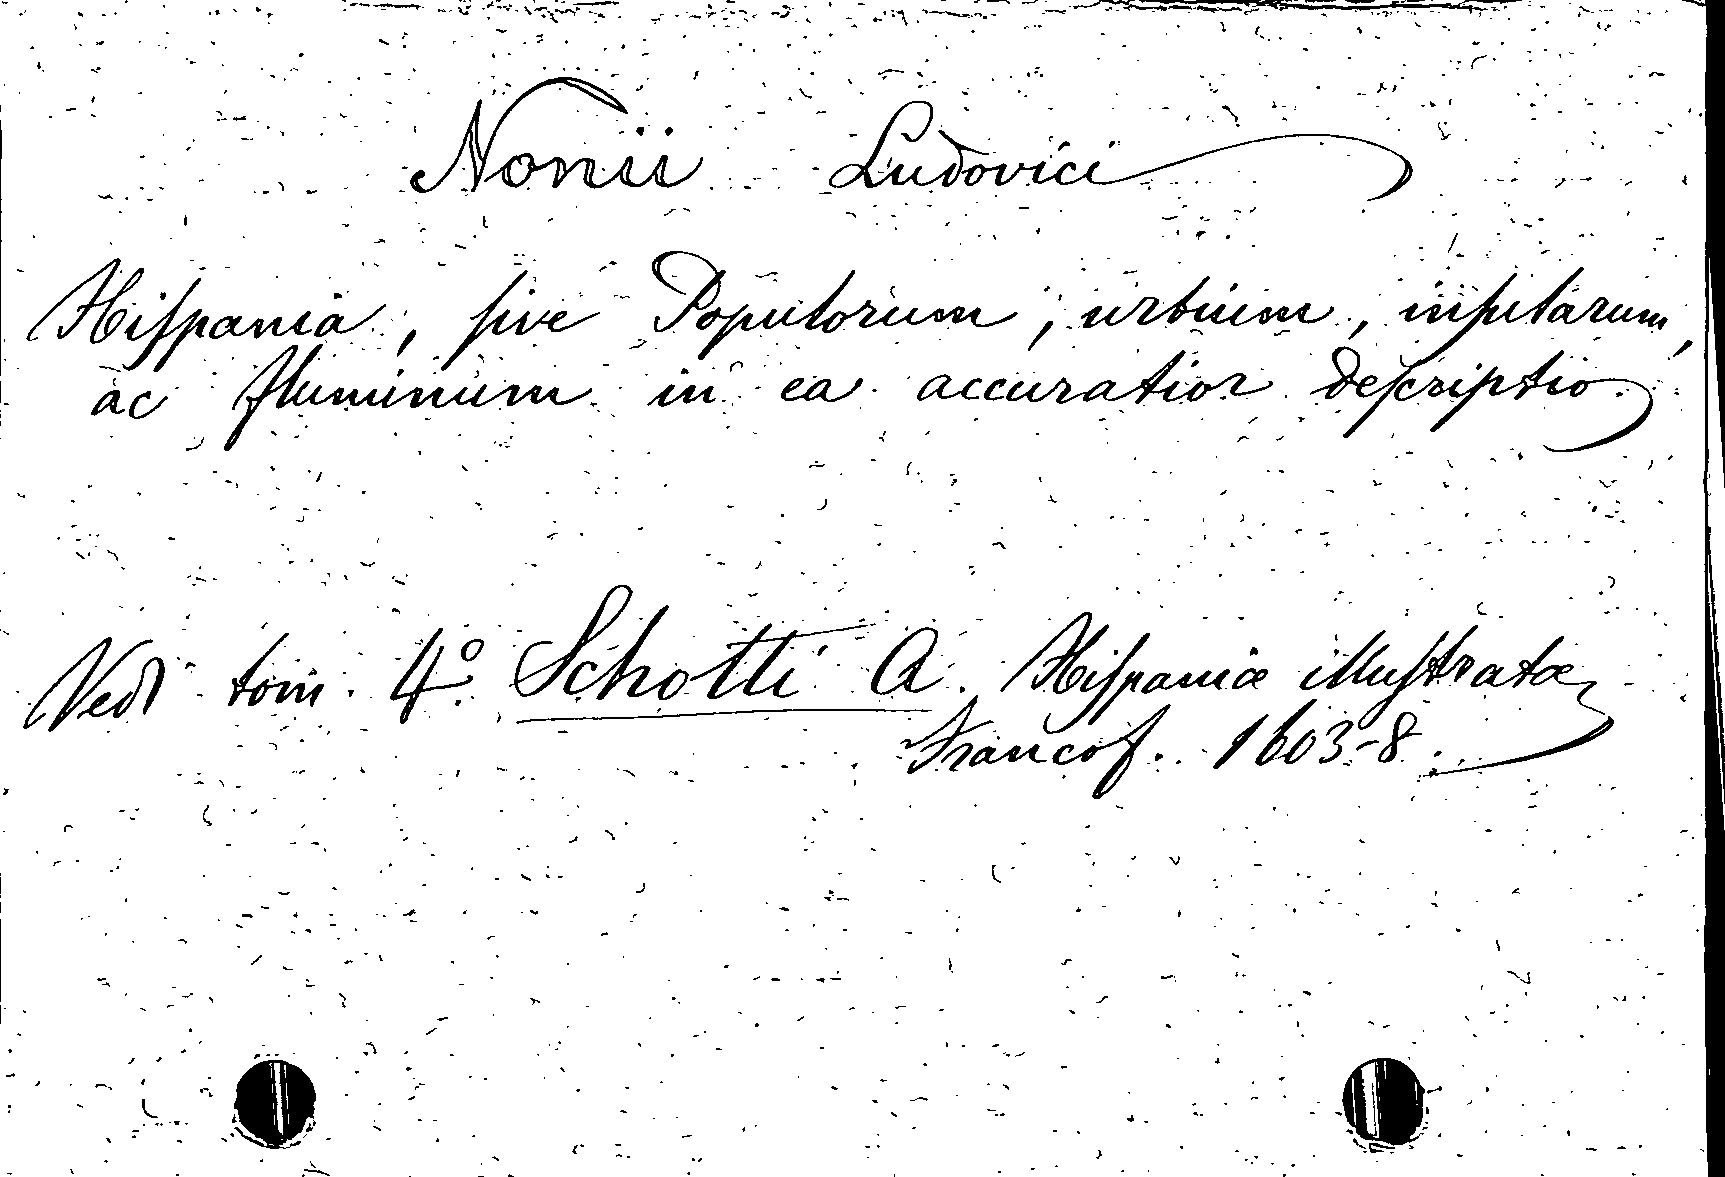 Nonii Ludovici
Hiſpania, ſive Populorum, urbium, inſularum,
ac fluminum in ea accuratior deſcriptio.
Vedi tom. 4.º Schotti A. Hiſpaniæ illuſtratæ
Francof. 1603-8.